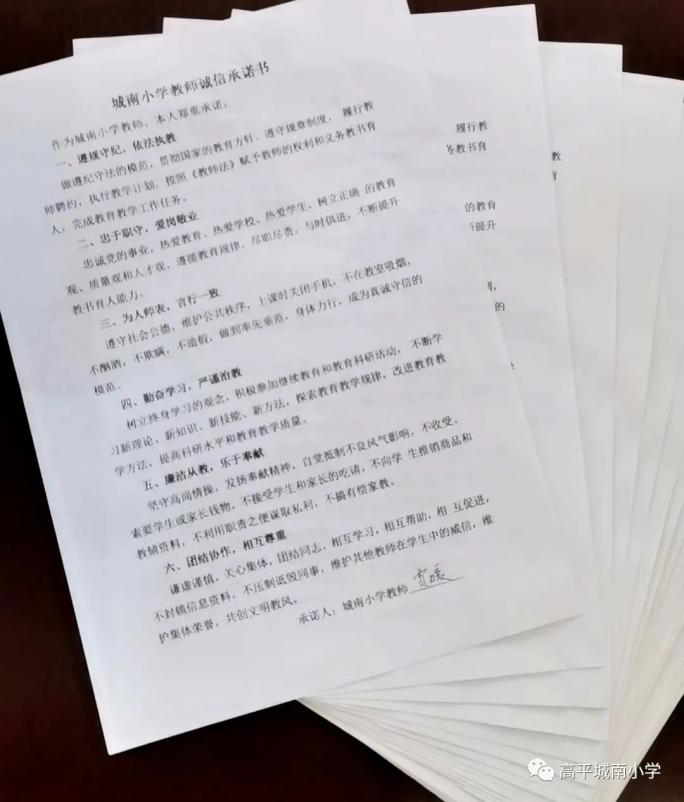 城南小学教师诚信承诺书
作为城南小学教师，本人郑重承诺：
一、遵规守纪，依法执教
做遵纪守法的模范，贯彻国家的教育方针，遵守规章制度， 履行教
师聘约，执行教学计划，按照《教师法》赋予教师的权利和义务教书育
人，完成教育教学工作任务。
二、忠于职守，爱岗敬业
忠诚党的事业，热爱教育、热爱学校、热爱学生，树立正确 的教育
观、质量观和人才观，遵循教育规律，尽职尽责，与时俱进，不断提升
教书育人能力。
三、为人师表，言行一致
遵守社会公德，维护公共秩序，上课时关闭手机，不在教室吸烟，
不酗酒，不欺瞒，不造假，做到率先垂范，身体力行，成为真诚守信的
模范。
四、勤奋学习，严谨治教
树立终身学习的观念，积极参加继续教育和教育科研活动， 不断学
习新理论、新知识、新技能、新方法，探索教育教学规律，改进教育教
学方法，提高科研水平和教育教学质量。
五、廉洁从教，乐于奉献
坚守高尚情操，发扬奉献精神，自觉抵制不良风气影响，不收受、
索要学生或家长钱物，不接受学生和家长的吃请，不向学 生推销商品和
教辅资料，不利用职责之便谋取私利，不搞有偿家教。
六、团结协作，相互尊重
谦虚谨慎，关心集体，团结同志，相互学习，相互帮助，相 互促进，
不封锁信息资料，不压制诋毁同事，维护其他教师在学生中的威信，维
护集体荣誉，共创文明教风。
承诺人：城南小学教师
履行教
务教书育
的教育
断提升
的
教
育
高平城南小学